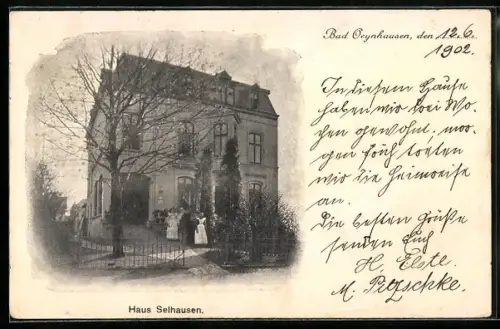 Bad Oeynhausen, den 12.6.
1902.
In diesem Hause
haben wir drei Wo-
chen gewohnt. mor-
gen früh treten
wir die Heimreise
an.
Die besten Grüße
senden Euch
H. Elste.
M. Petzschke.
Haus Selhausen.